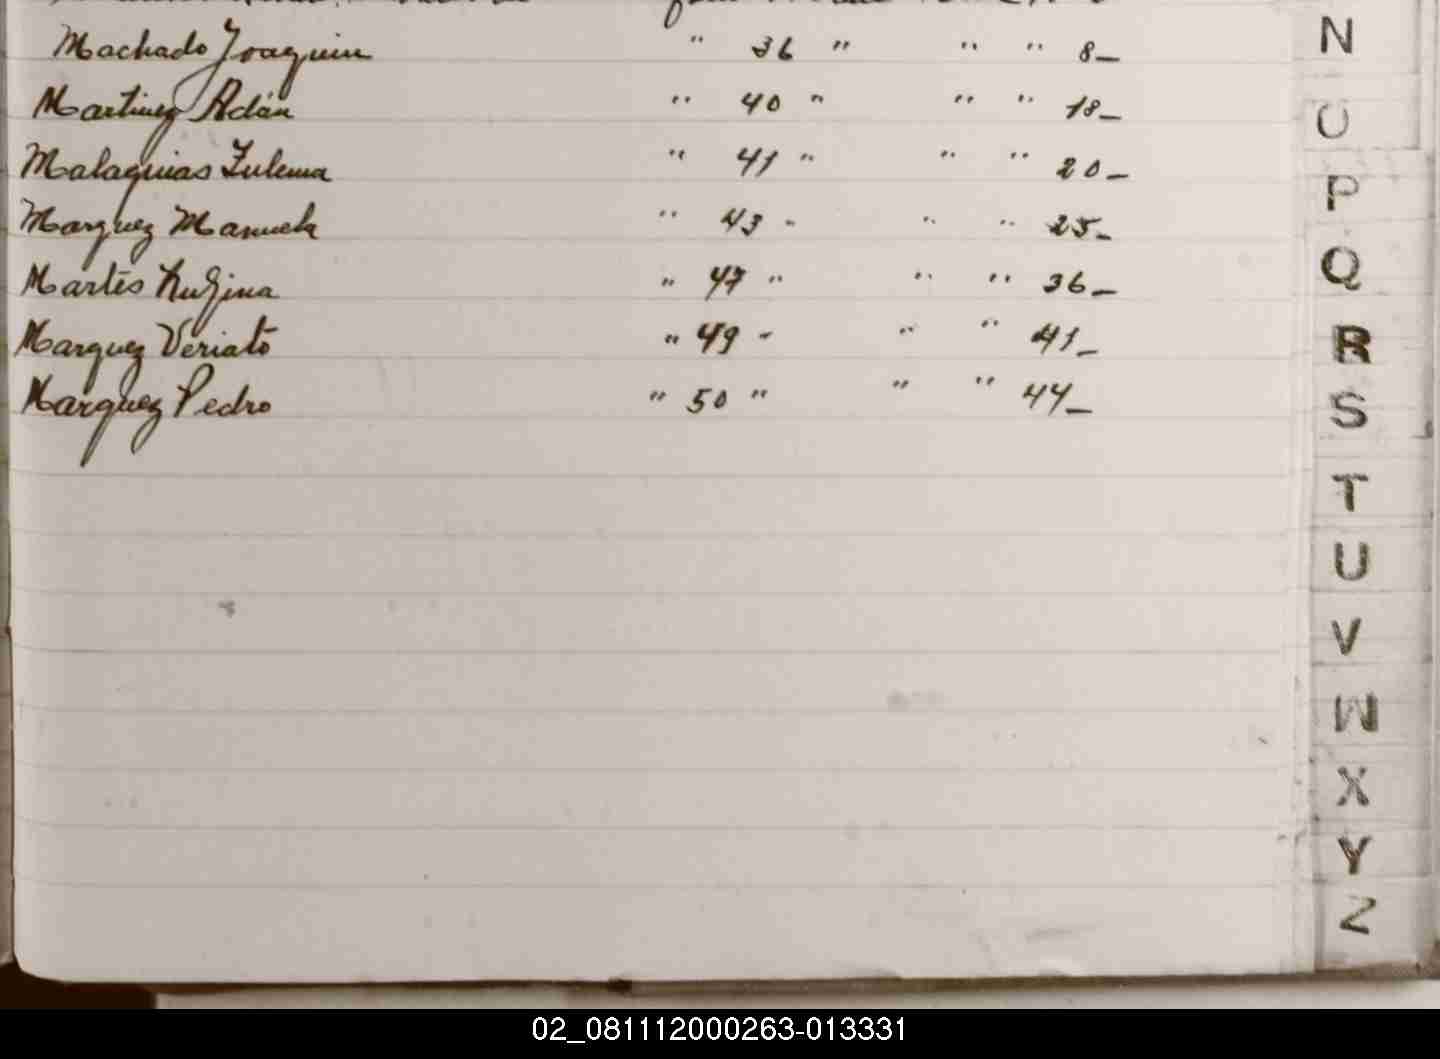 Machado Joaquin " 36 " " " 8_
Martinez Adán " 40 " " " 18_
Malaquias Zulema " 41 " " " 20_
Marquez Manuela " 43 " " " 25_
Martes Rufina " 47 " " " 36_
Marquez Veriato " 49 " " " 41_
Marquez Pedro " 50 " " " 44_
N
O
P
Q
R
S
T
U
V
W
X
Y
Z
02_081112000263-013331